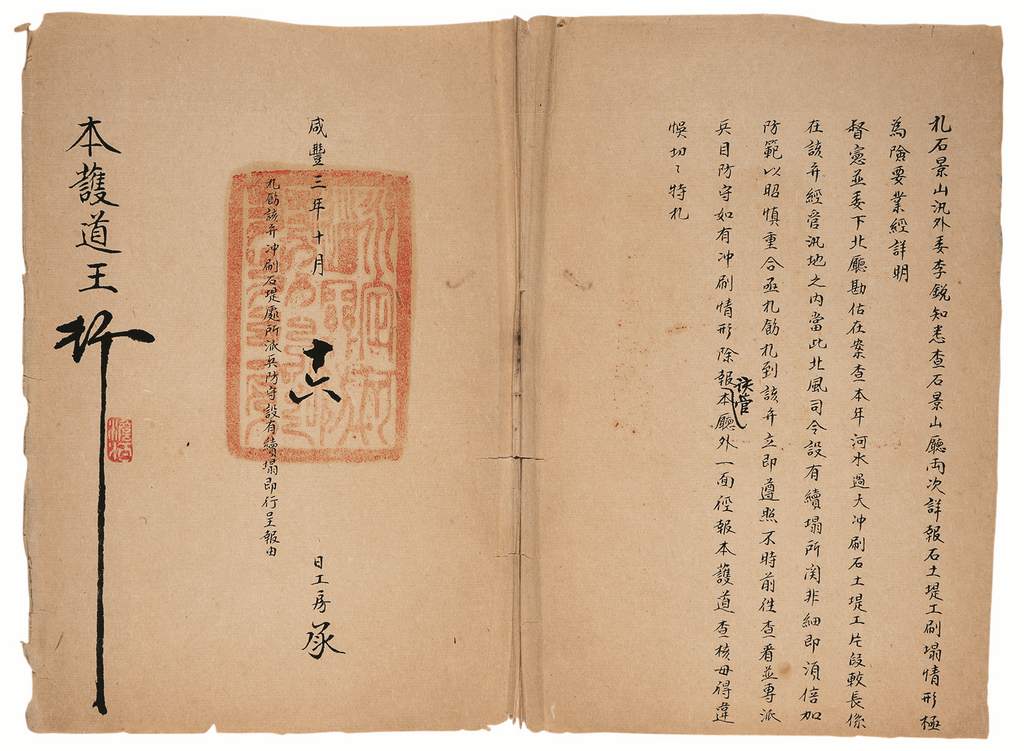 札石景山汛外委李銳知悉查石景山廳兩次詳報石土堤工刷塌情形極
為險要業經詳明
督憲並委下北廳勘估在案查本年河水過大冲刷石土堤工片段較長係
在該弁經管汛地之內當此北風司令設有續塌所関非細即須倍加
防範以昭慎重合亟札飭札到該弁立即遵照不時前徃查看並專派
兵目防守如有冲刷情形除報該管本廳外一面徑報本護道查核毋得違
悞切〻特札
咸豐三年十月十六日工房承
札飭該弁冲刷石堤處所派兵防守設有續塌即行呈報由
本護道王